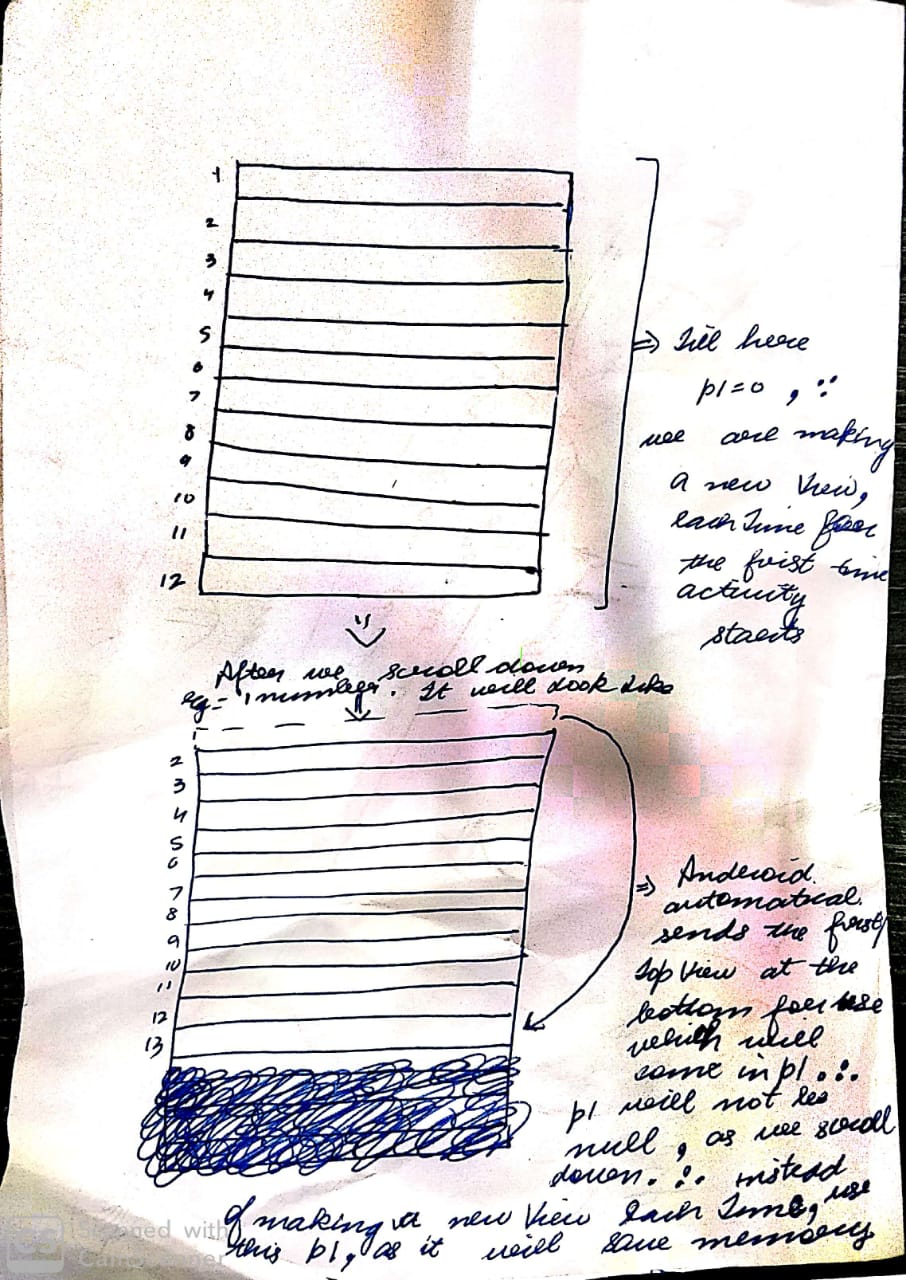 1
2
3
4
5
6
7
8
9
10
11
12
⇒ Till here
p1=0 , ∵
we are making
a new View,
each time for
the first time
activity
starts
After we scroll down
eg= 1 number. It will look like
2
3
4
5
6
7
8
9
10
11
12
13
⇒ Android
automatical.
sends the first/
top view at the
bottom for use
which will
come in p1 ∴
p1 will not be
null, as we scroll
down. ∴ instead
of making a new View each time, use
this p1, as it will save memory
Scanned with
CamScanner